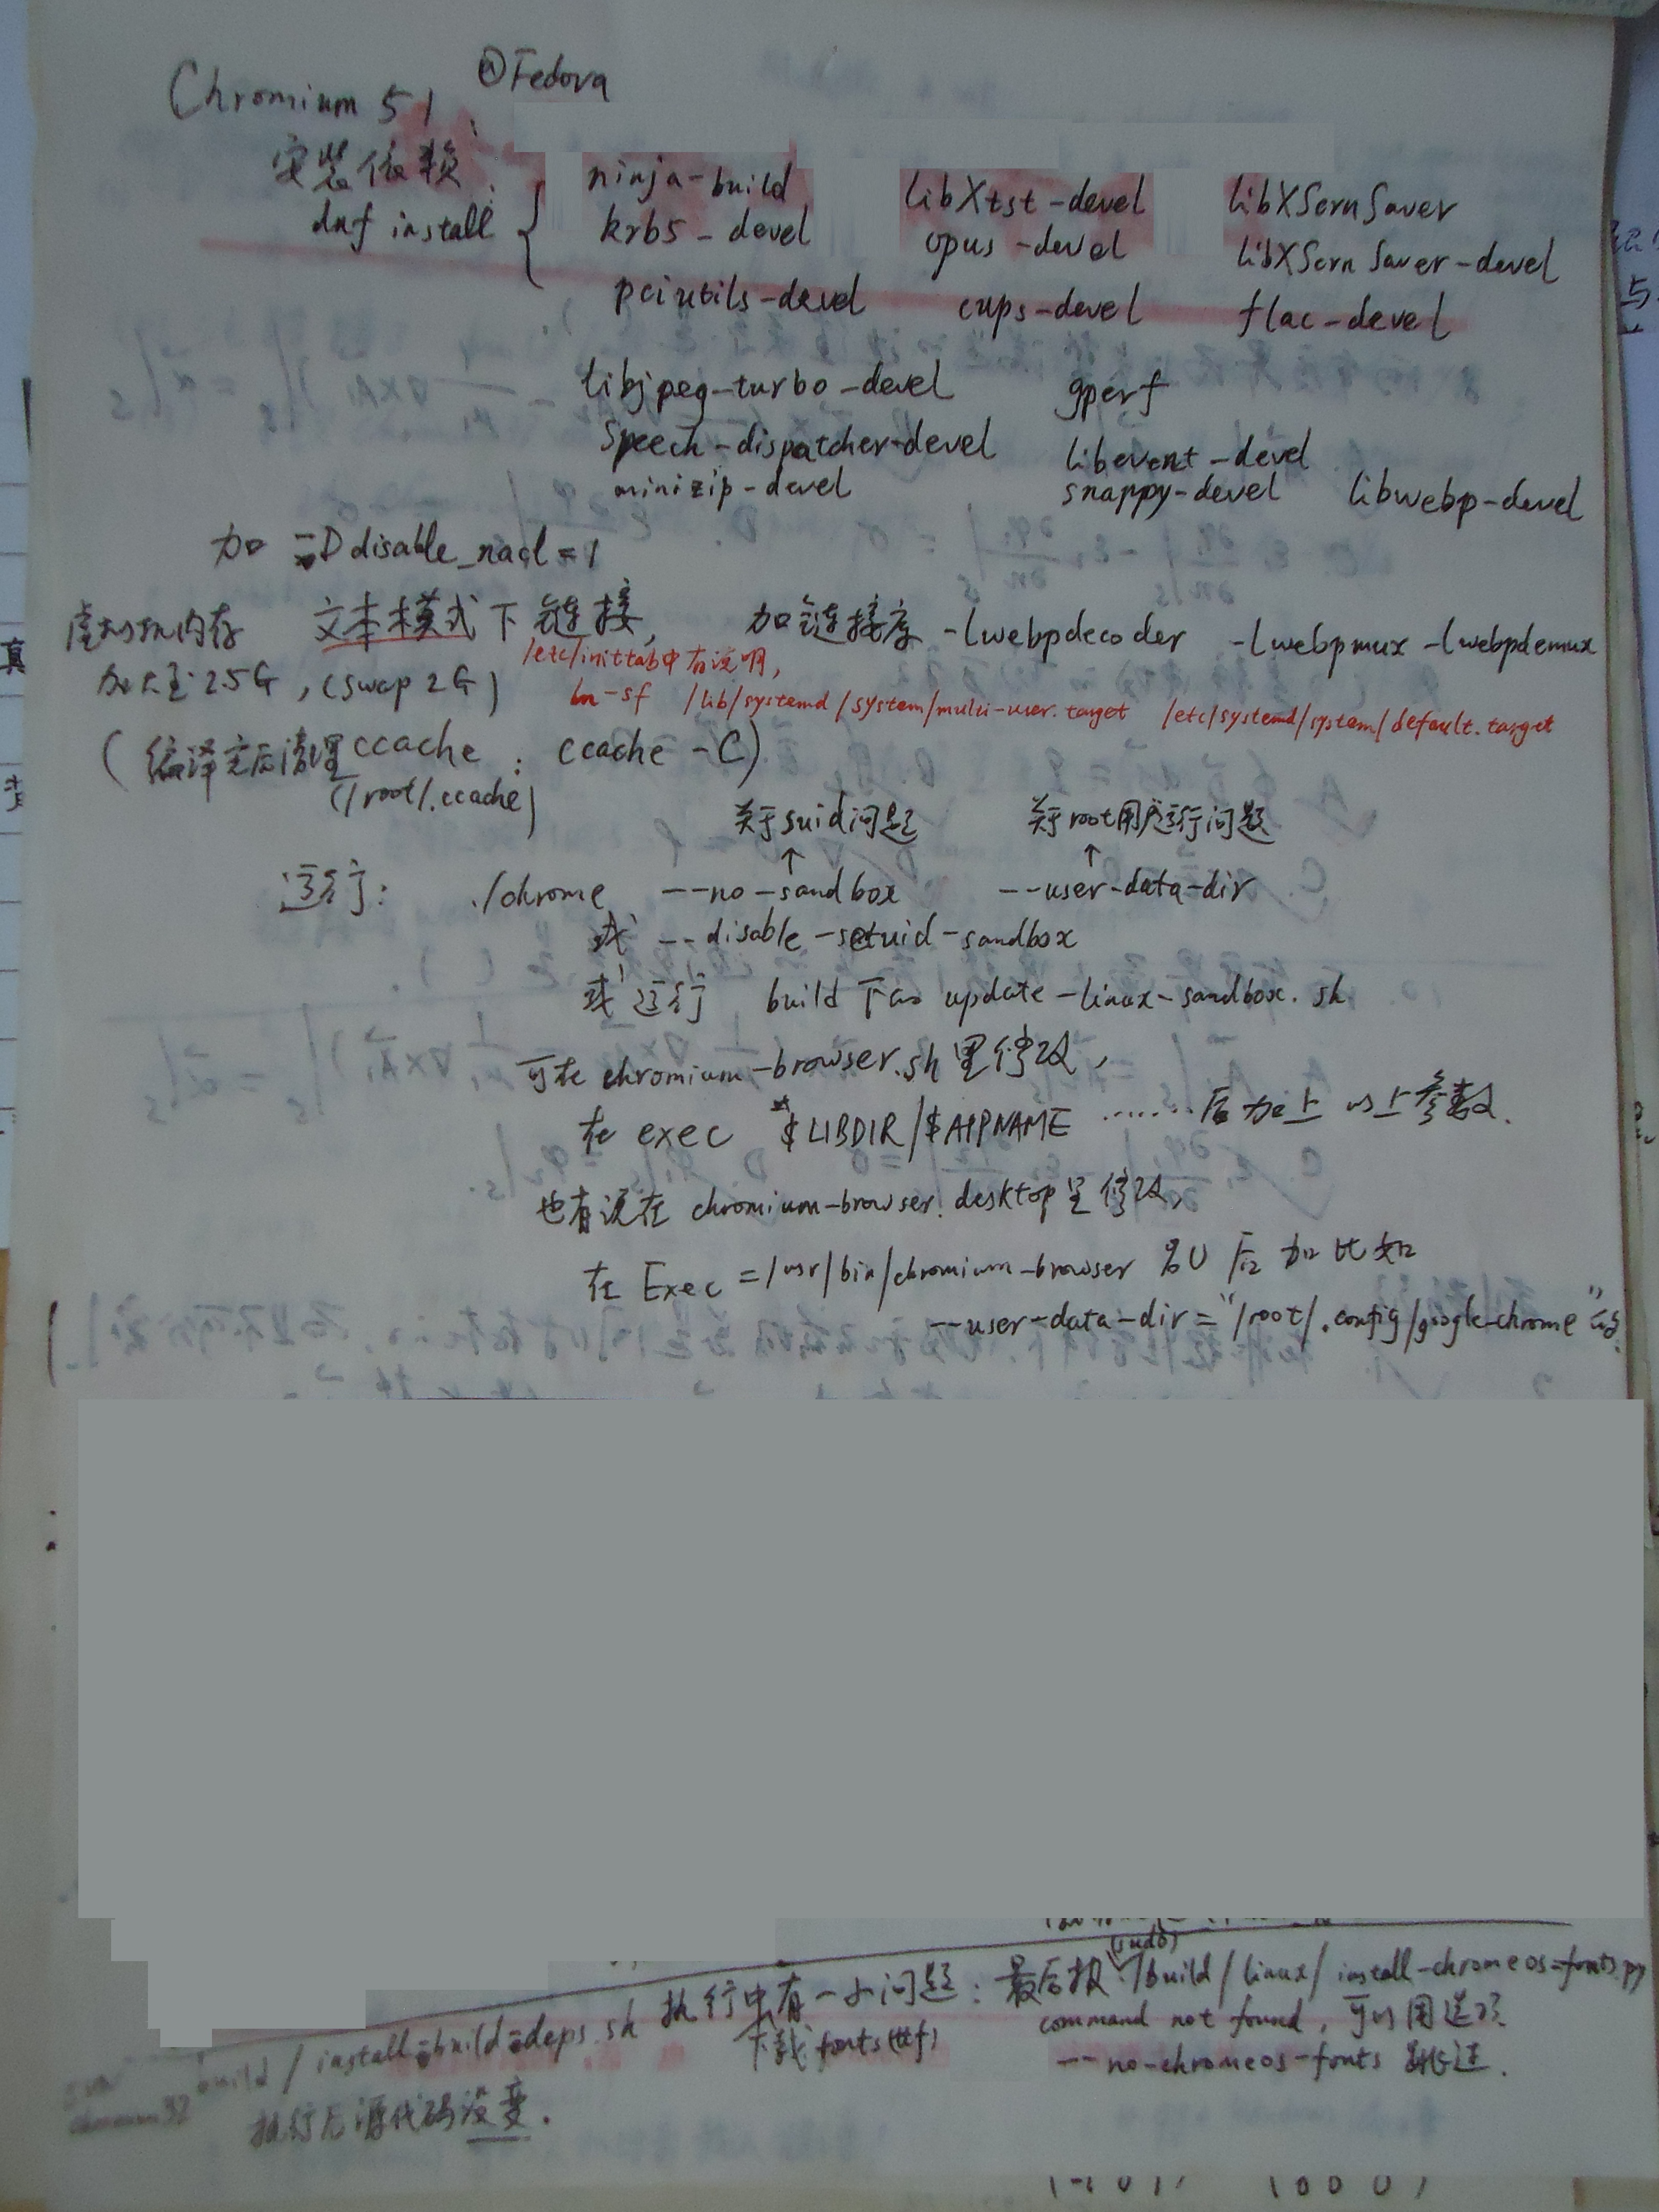 Chromium 51 @Fedora
安装依赖:
dnf install {
ninja-build libXtst-devel libXScrnSaver
krb5-devel opus-devel libXScrnSaver-devel
pciutils-devel cups-devel flac-devel
libjpeg-turbo-devel gperf
speech-dispatcher-devel libevent-devel
minizip-devel snappy-devel libwebp-devel
加 -Ddisable_nacl=1
虚拟机内存 文本模式下链接, 加链接库 -lwebpdecoder -lwebpmux -lwebpdemux
/etc/inittab中有说明,
加大至2.5G, (swap 2G)
ln -sf /lib/systemd/system/multi-user.target /etc/systemd/system/default.target
(编译完后清理ccache: ccache -C)
(/root/.ccache)
关于suid问题 关于root用户运行问题
↑ ↑
运行: ./chrome --no-sandbox --user-data-dir
或 --disable-setuid-sandbox
或运行 build下的 update-linux-sandbox.sh
可在chromium-browser.sh里修改,
在 exec $LIBDIR/$APPNAME ...... 后加上 以上参数.
也有说在 chromium-browser.desktop里修改,
在 Exec=/usr/bin/chromium-browser %U 后加比如
--user-data-dir="/root/.config/google-chrome"的.
(sudo)
build/install-build-deps.sh 执行中有一小问题: 最后报 ./build/linux/install-chromeos-fonts.py
下载fonts(ttf) command not found, 可以用选项
--no-chromeos-fonts 跳过.
执行后源代码没变.